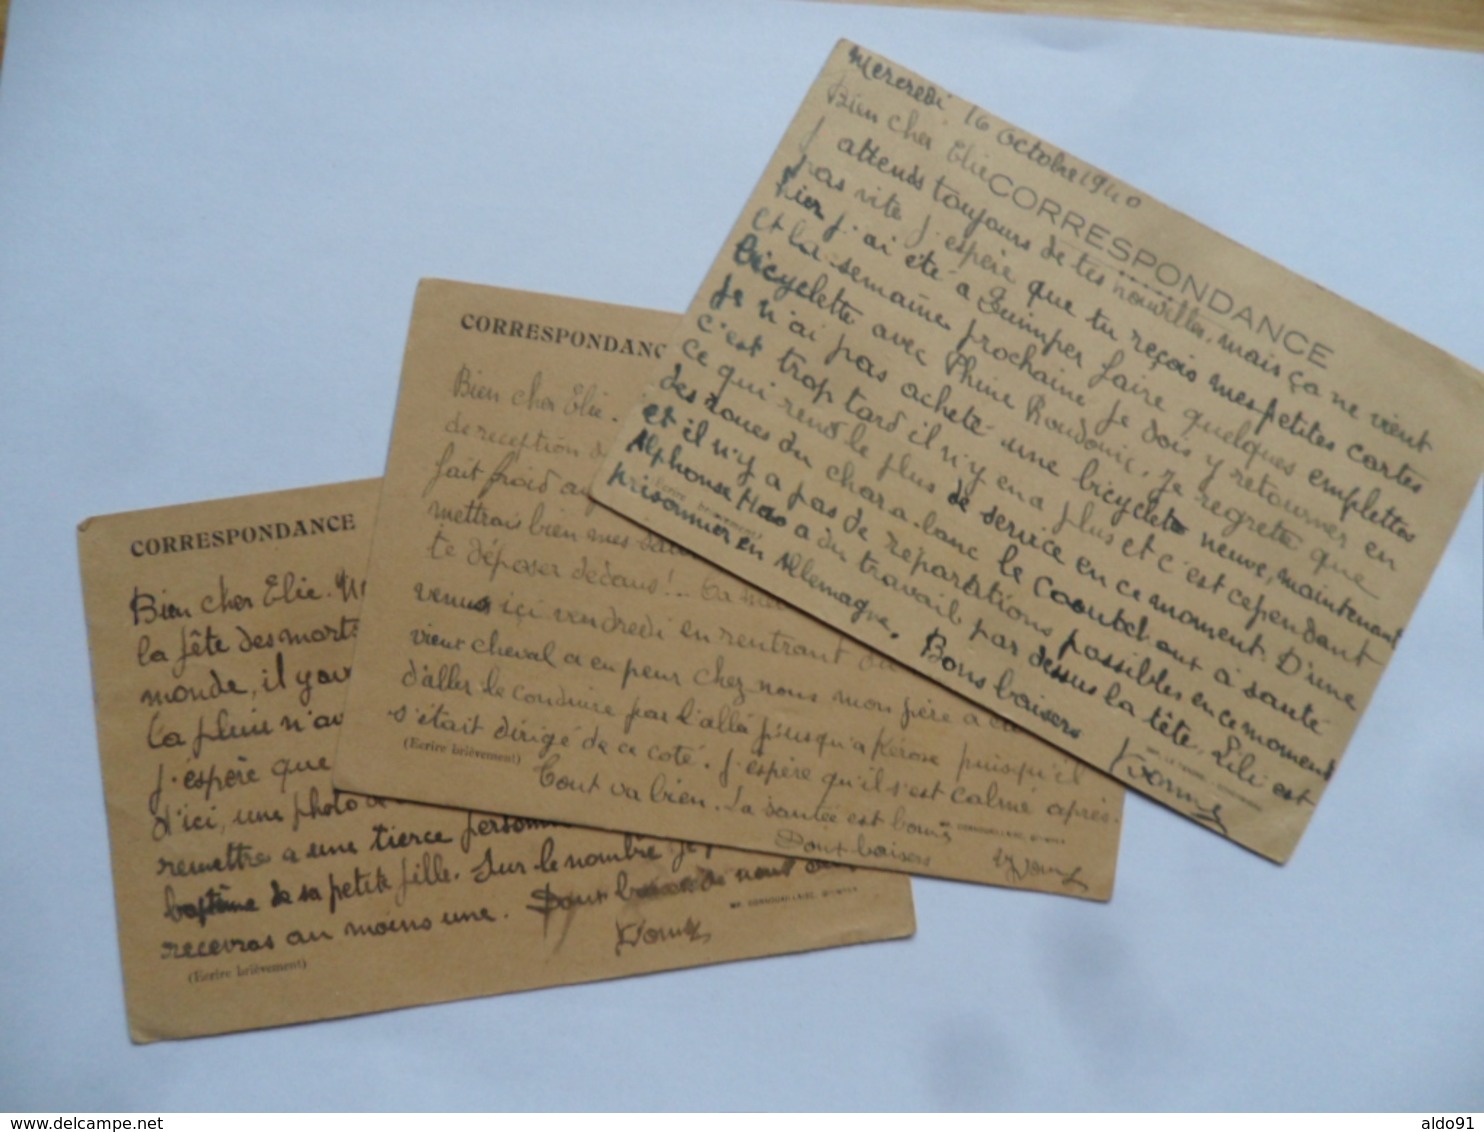 Mercredi 16 Octobre 1940
CORRESPONDANCE
Bien cher Elie
J attends toujours de tes nouvelles, mais ça ne vient
pas vite J'espère que tu reçois mes petites cartes
hier j'ai été a Quimper faire quelques emplettes
et la semaine prochaine je dois y retourner en
bicyclette avec Phine Roudonic, je regrette que
je n'ai pas acheté une bicyclete neuve, maintenant
c'est trop tard il n'y en a plus et c'est cependant
ce qui rend le plus de service en ce moment. D'une
des roues du char a banc le caoutchout a sauté
et il n'y a pas de réparations possibles en ce moment
Alphonse Has a du travail par dessus la tête, Lili est
prisonnier en Allemagne. Bons baisers
Yvonne
(Ecrire brièvement)
CORRESPONDANC
Bien cher Elie.
de reception d
fait froid au
mettrais bien mes
te déposer dedans!..
venus ici vendredi en rentrant
vieux cheval a eu peur chez nous mon père a
d'aller le conduire par l'allé jusqu'a Kerose puisqu'il
s'était dirigé de ce coté. J'espère qu'il s'est calmé après.
Tout va bien. La santée est bonne
Doux baisers
Yvonne
(Ecrire brièvement)
CORRESPONDANCE
Bien cher Elie.
la fête des morts
monde, il y av
la pluie n'av
j'espère que
d'ici, une photo
remettre a une tierce personn
baptême de sa petite fille. Sur le nombre je
recevras au moins une. Doux baisers de nous
Yvonne
(Ecrire brièvement)
delcampe.net
aldo91